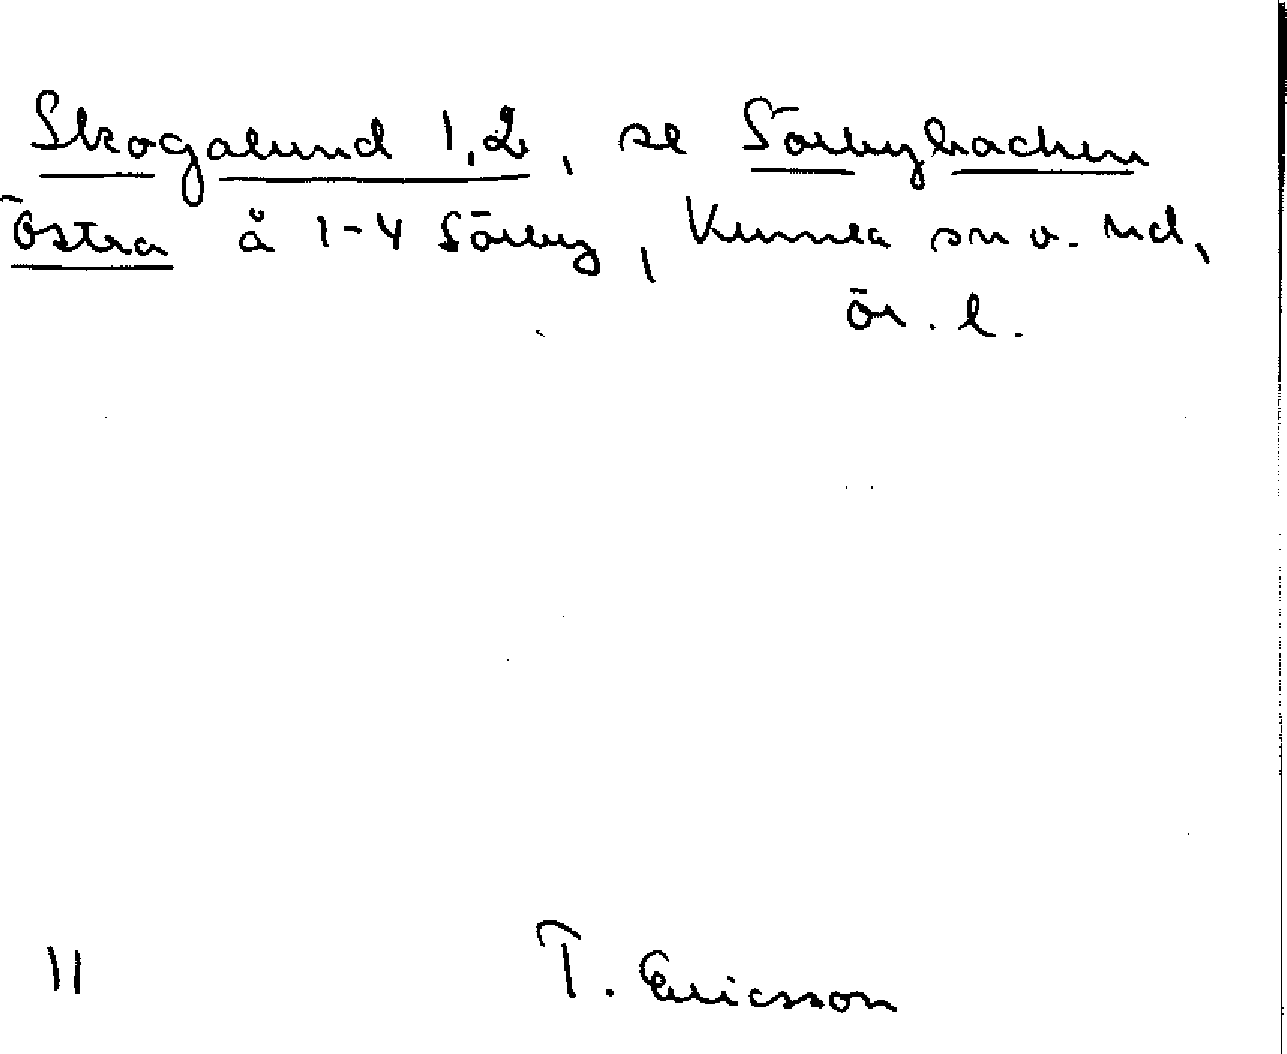 Skogalund 1,2, se Sörbybacken
Östra å 1-4 Sörby, Kumla sn o. hd,
Ör. l.
11 T. Ericsson